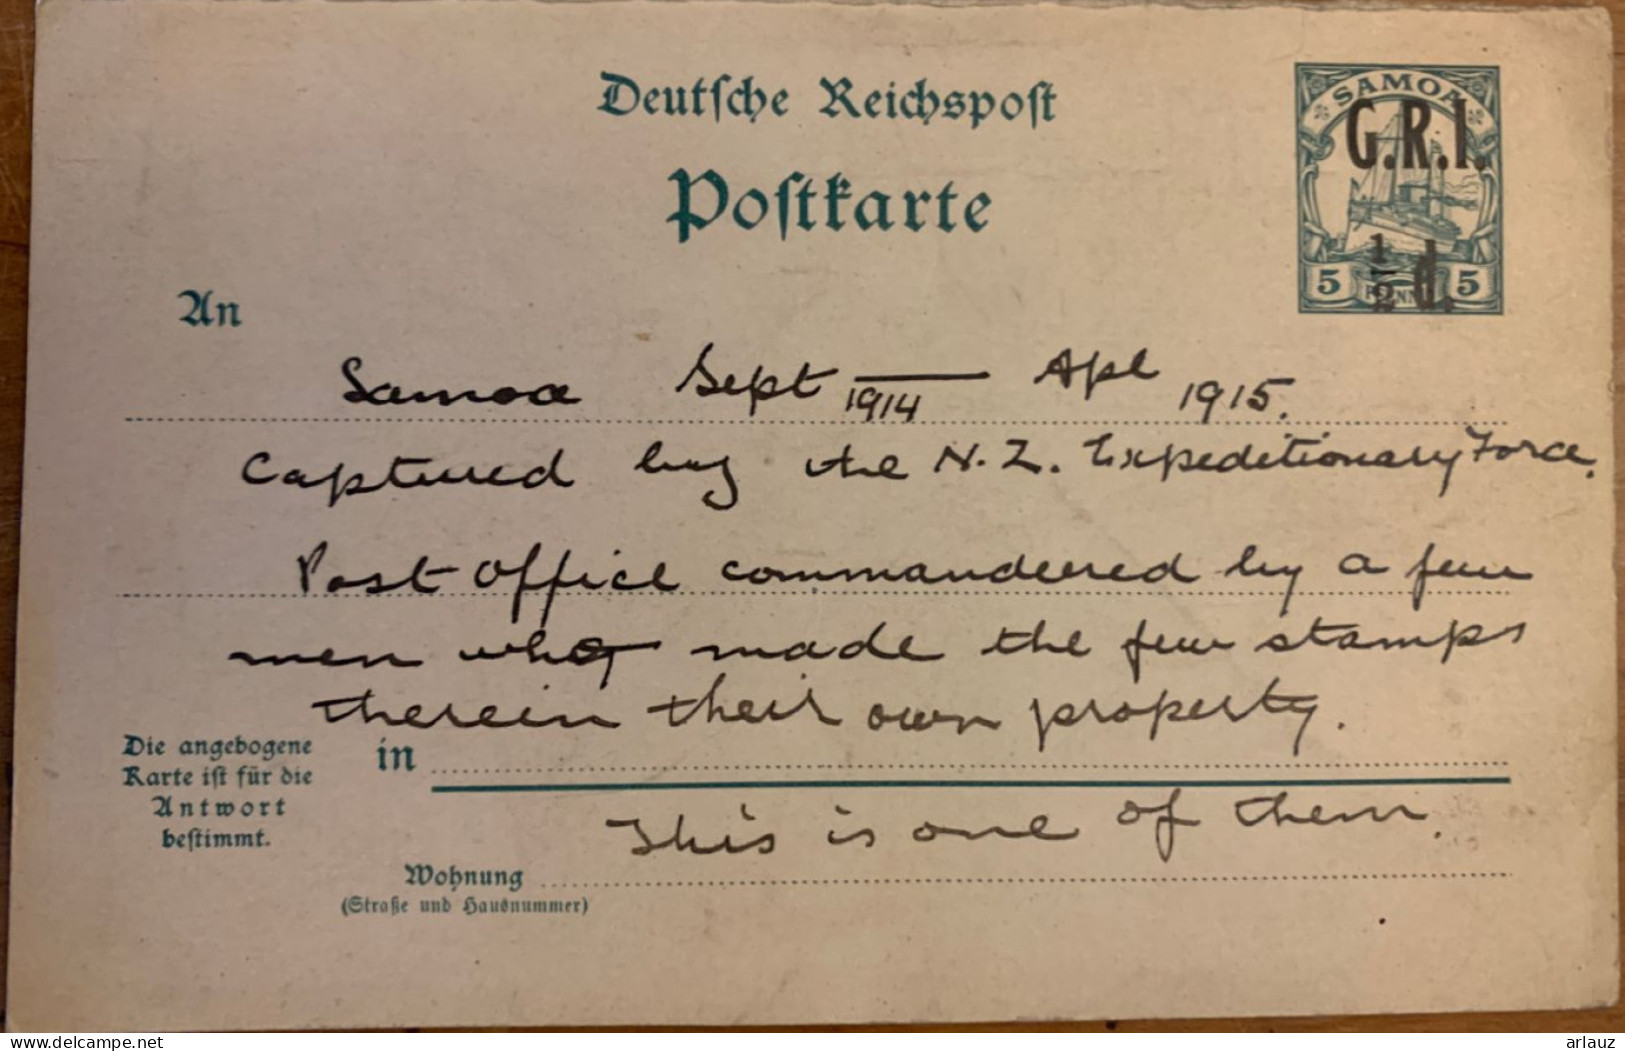 Deutsche Reichspost
Postkarte
SAMOA
G.R.I.
1/2 d.
5 PFENNIG 5
An
Samoa Sept 1914 — Apl 1915.
Captured by the N.Z. Expeditionary Force.
Post office commandeered by a few
men who made the few stamps
therein their own property.
Die angebogene
Karte ist für die
Antwort
bestimmt.
in
This is one of them.
Wohnung
(Straße und Hausnummer)
www.delcampe.net
arlauz